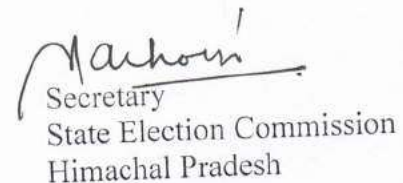 Secretary
State Election Commission
Himachal Pradesh